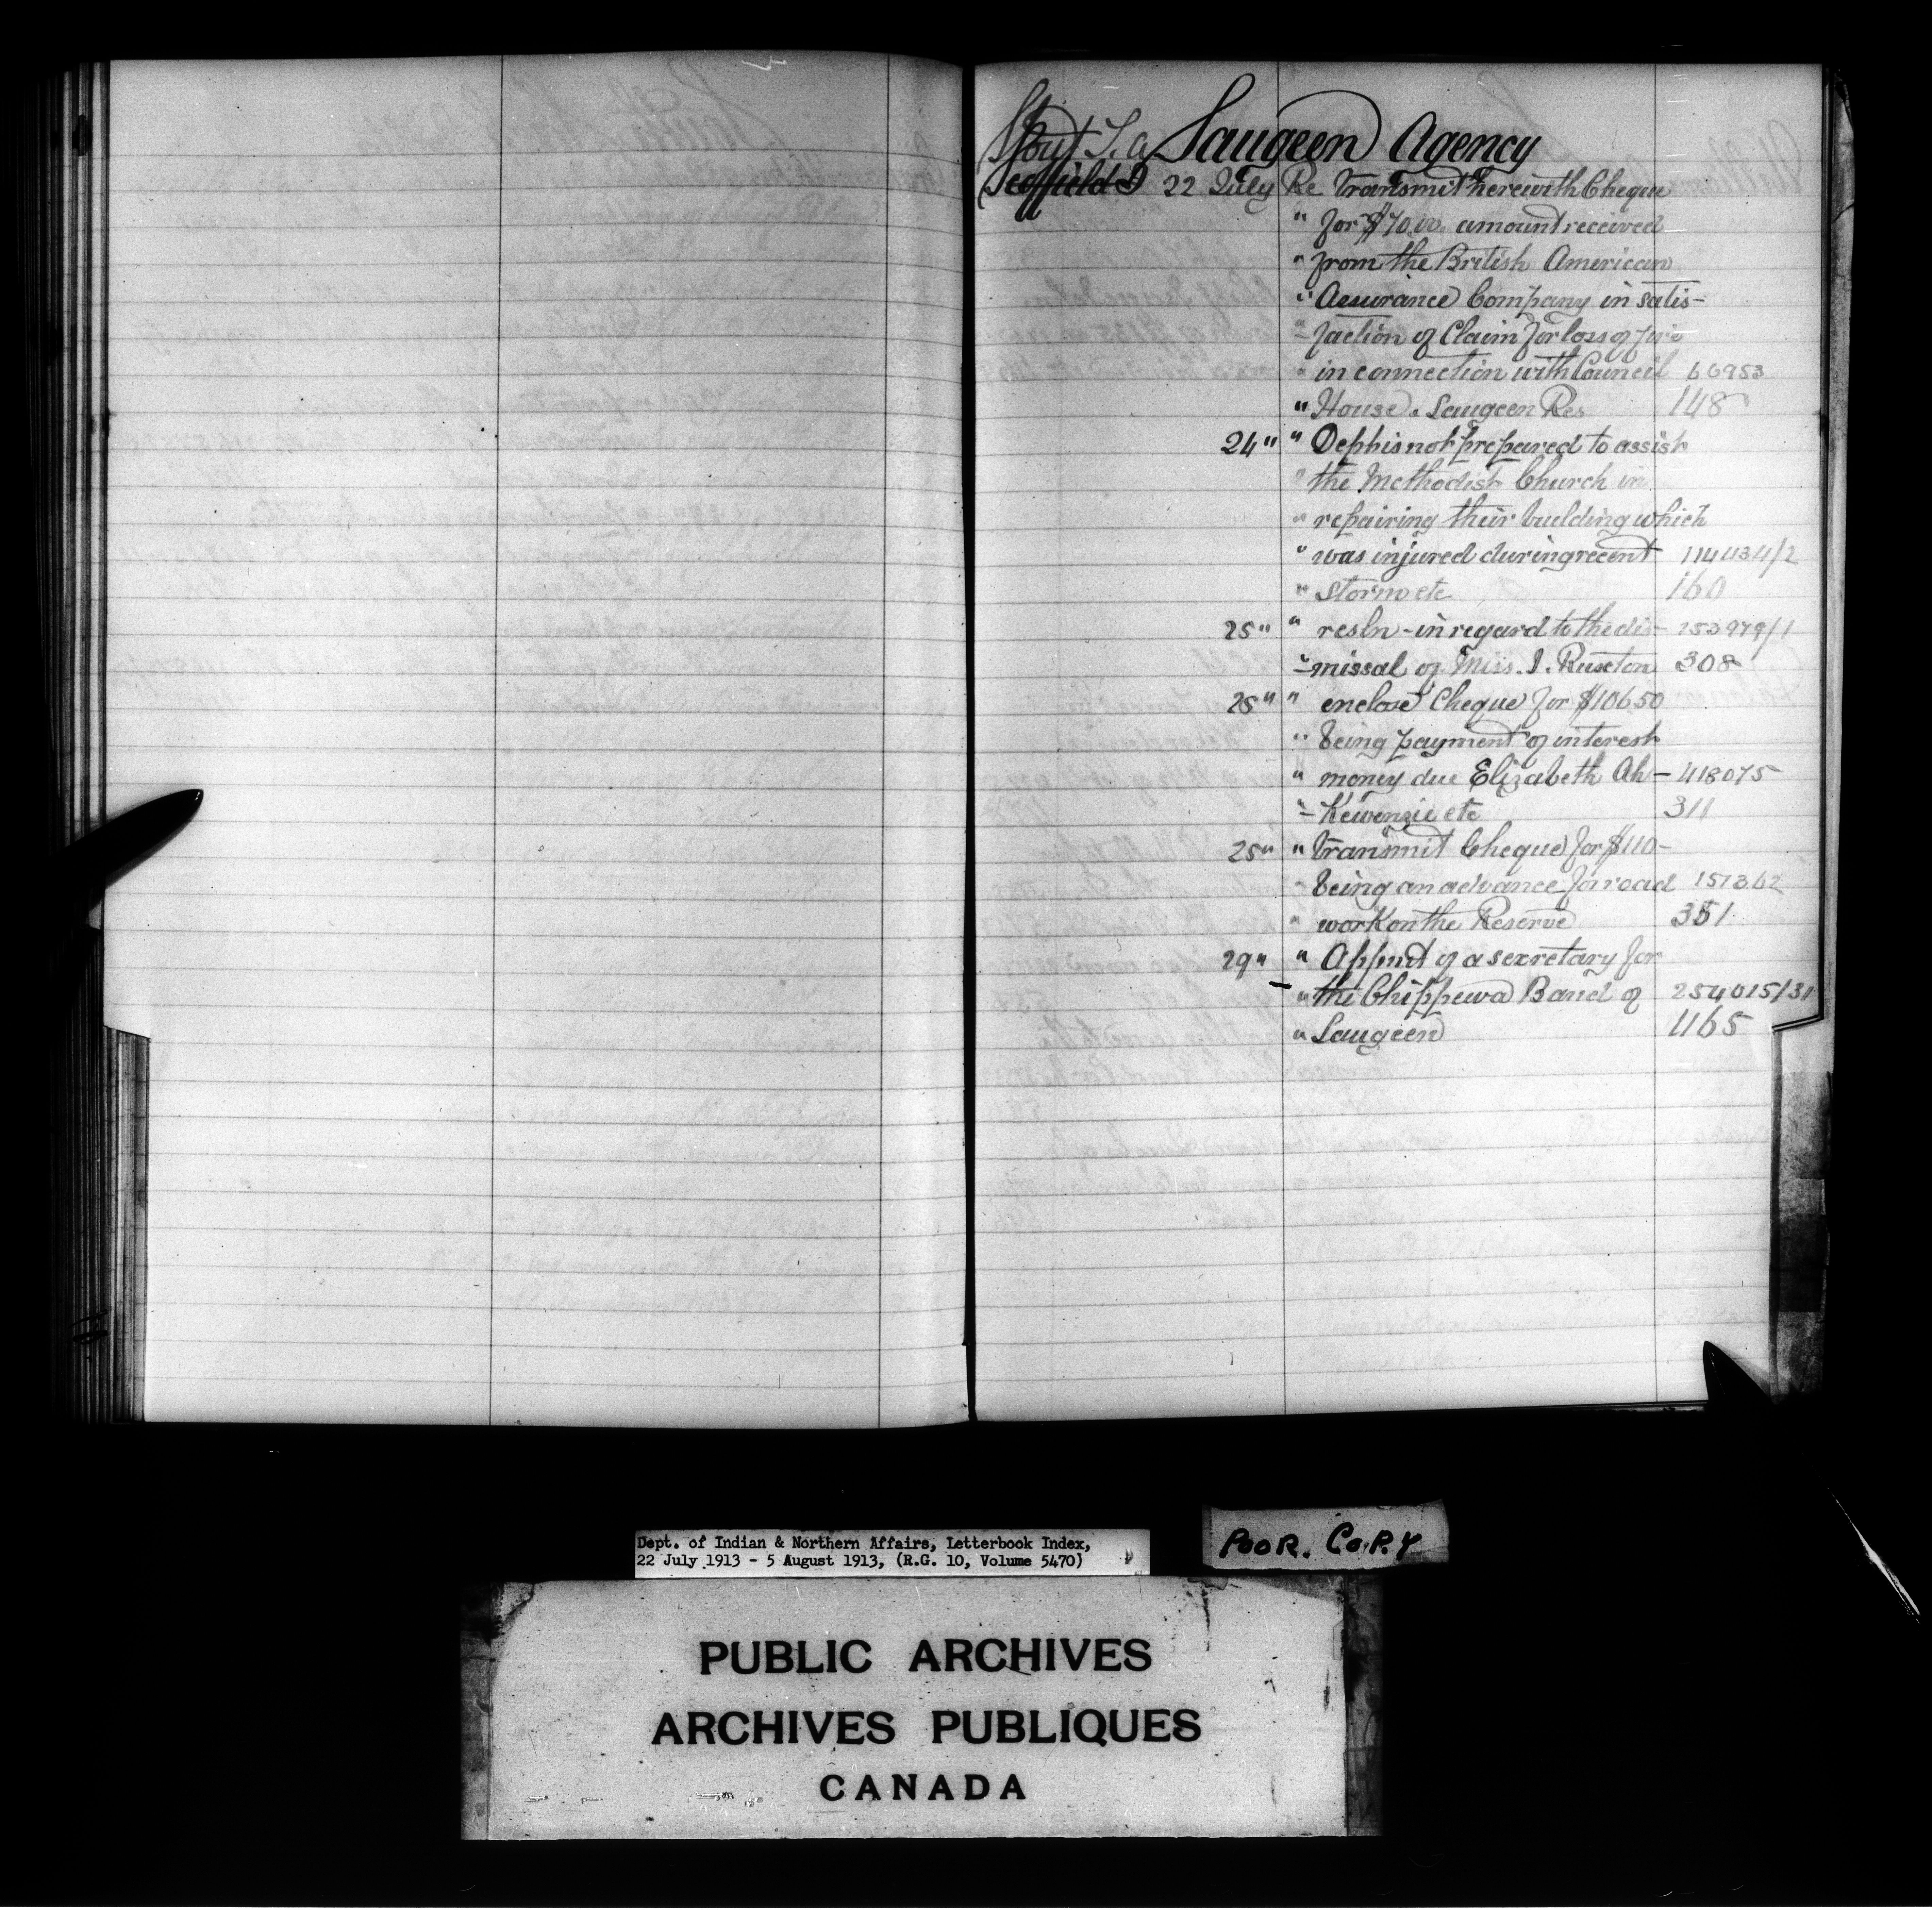 Stout T. A. Saugeen Agency
Scoffield J 22 July Re Transmit herewith Cheque
" for $70.00. amount received
" from the British American
" Assurance Company in satis-
"- faction of Claim for loss of fire
" in connection with Council 60953
" House. Saugeen Res 148
24 " " Dept is not prepared to assist
" the Methodist Church in
" repairing their building which
" was injured during recent 114434/2
" storm etc 160
25 " " resln - in regard to the dis- 253979/1
"- missal of Miss. I. Ruxton 308
25 " " enclose Cheque for $106.50
" being payment of interest
" money due Elizabeth Ah- 418075
"- Kewenzie etc 311
25 " " Transmit Cheque for $110-
" being an advance for road 151362
" work on the Reserve 351
29 " " Appmt of a secretary for
" the Chippewa Band of 254015/31
" Saugeen 1165
Dept. of Indian & Northern Affairs, Letterbook Index,
22 July 1913 - 5 August 1913, (R.G. 10, Volume 5470)
POOR. COPY
PUBLIC ARCHIVES
ARCHIVES PUBLIQUES
CANADA